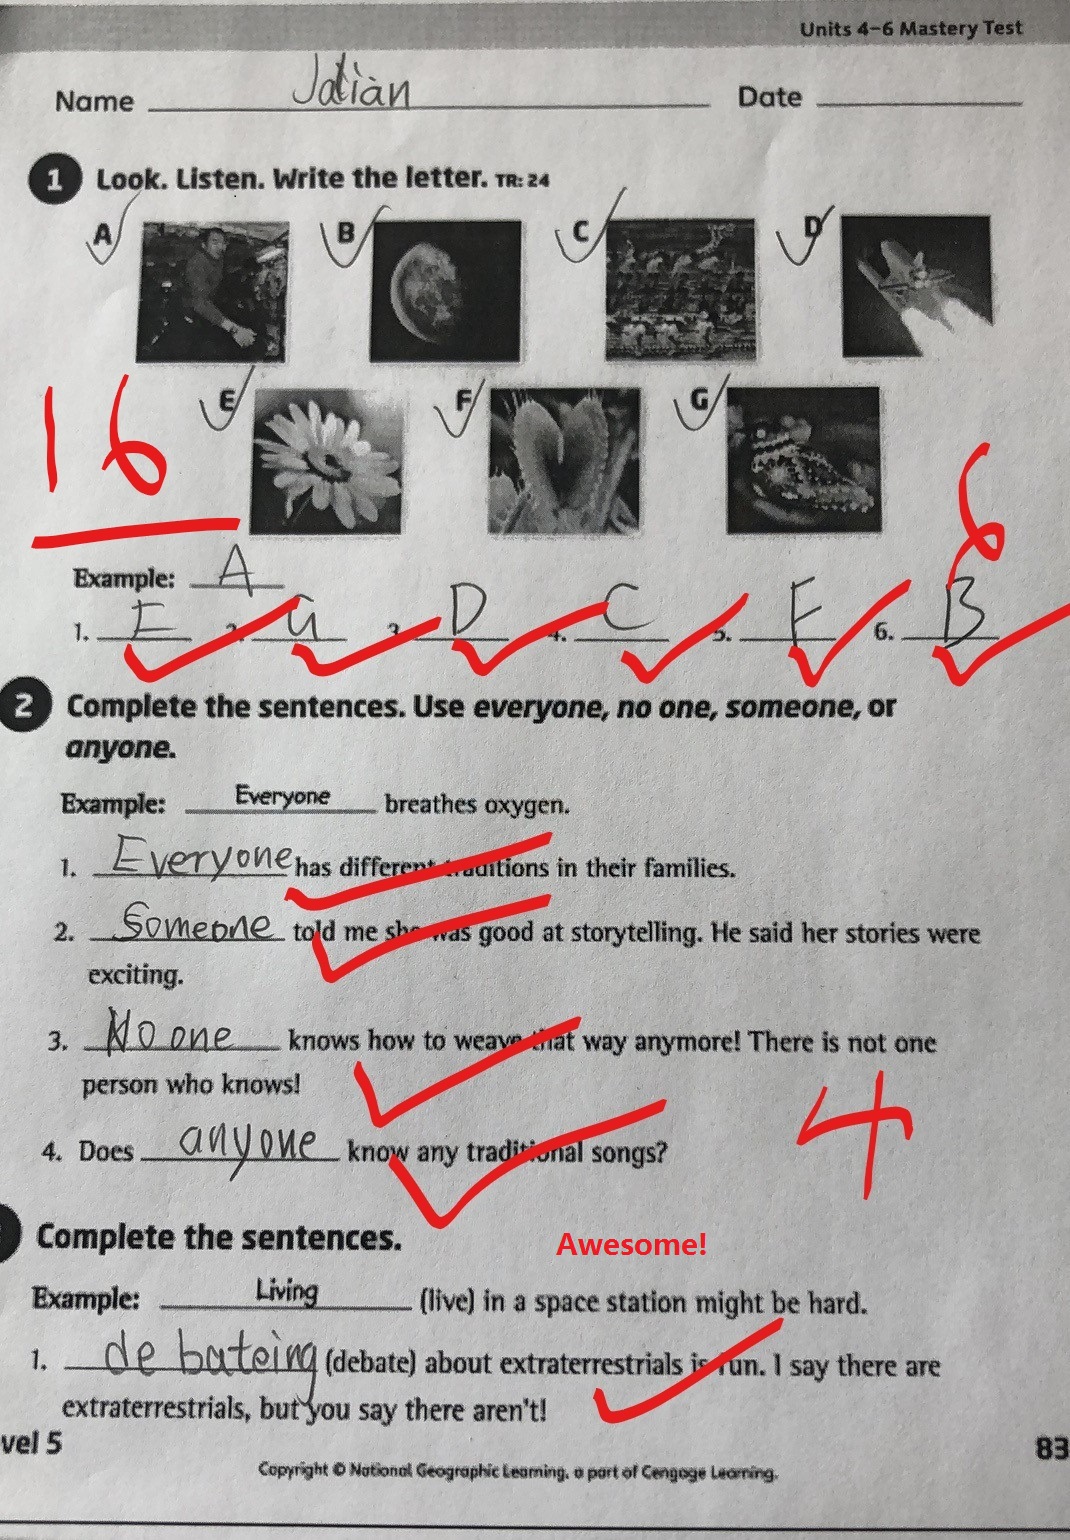 Units 4-6 Mastery Test
Name Jatian Date
1 Look. Listen. Write the letter. TR: 24
A B C D
E F G
16
6
Example: A
1. E 2. G 3. D 4. C 5. F 6. B
2 Complete the sentences. Use everyone, no one, someone, or
anyone.
Example: Everyone breathes oxygen.
1. Everyone has different traditions in their families.
2. Someone told me she was good at storytelling. He said her stories were
exciting.
3. No one knows how to weave that way anymore! There is not one
person who knows!
4
4. Does anyone know any traditional songs?
Complete the sentences.
Awesome!
Example: Living (live) in a space station might be hard.
1. debateing (debate) about extraterrestrials is fun. I say there are
extraterrestrials, but you say there aren't!
vel 5
83
Copyright © National Geographic Learning, a part of Cengage Learning.